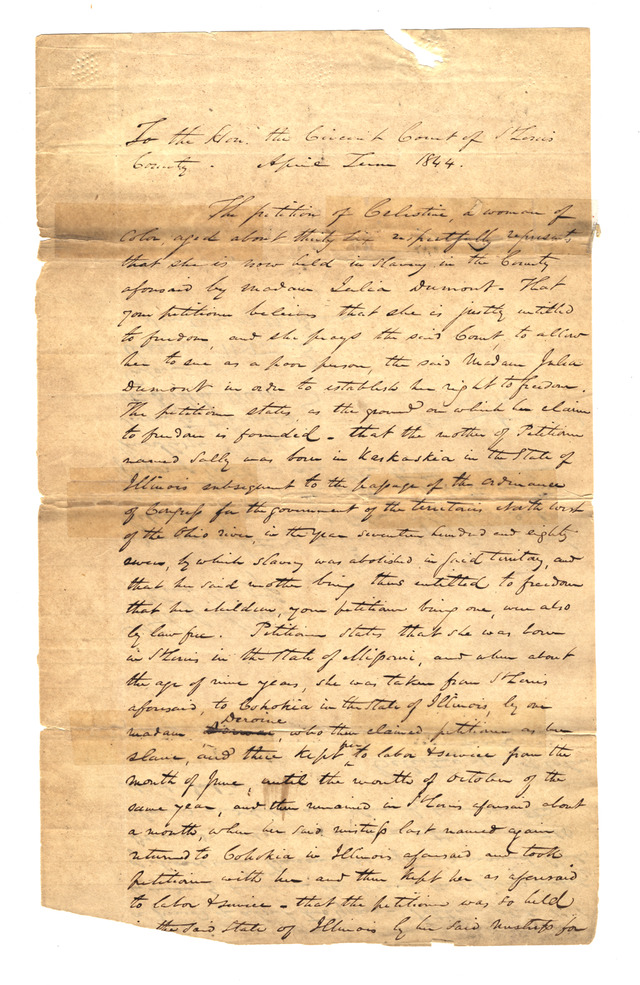 To the Hon. the Circuit Court of St Louis
County. April Term 1844.
The petition of Celestine, a woman of
Color aged about thirty six respectfully represents
that she is now held in slavery in the County
aforesaid by madame Julia Dumont. That
your petitioner believes that she is justly entitled
to freedom, and she prays the said Court, to allow
her to sue as a poor person, the said Madam Julia
Dumont in order to establish her right to freedom.
The petitioner states as the ground on which her claim
to freedom is founded - that the mother of Petitioner
named Sally was born in Kaskaskia in the State of
Illinois subsequent to the passage of the ordinance
of Congress for the government of the territories North west
of the Ohio river, in the year seventeen hundred and eighty
seven, by which slavery was abolished in said territory, and
that her said mother being thus entitled to freedom
that her children, your petitioner being one, were also
by law free. Petitioner states that she was born
in St Louis in the State of Missouri, and when about
the age of nine years, she was taken from St Louis
aforesaid, to Cohokia in the State of Illinois, by one
madam Deroine, who then claimed petitioner as her
slave, and there kept her to labor & service from the
month of June, until the month of October of the
same year, and then remained in St Louis aforesaid about
a month, when her said mistress last named again
returned to Cohokia in Illinois aforesaid and took
petitioner with her and then kept her as aforesaid
to labor & service - that the petitioner was so held
in the said State of Illinois by her said mistress for